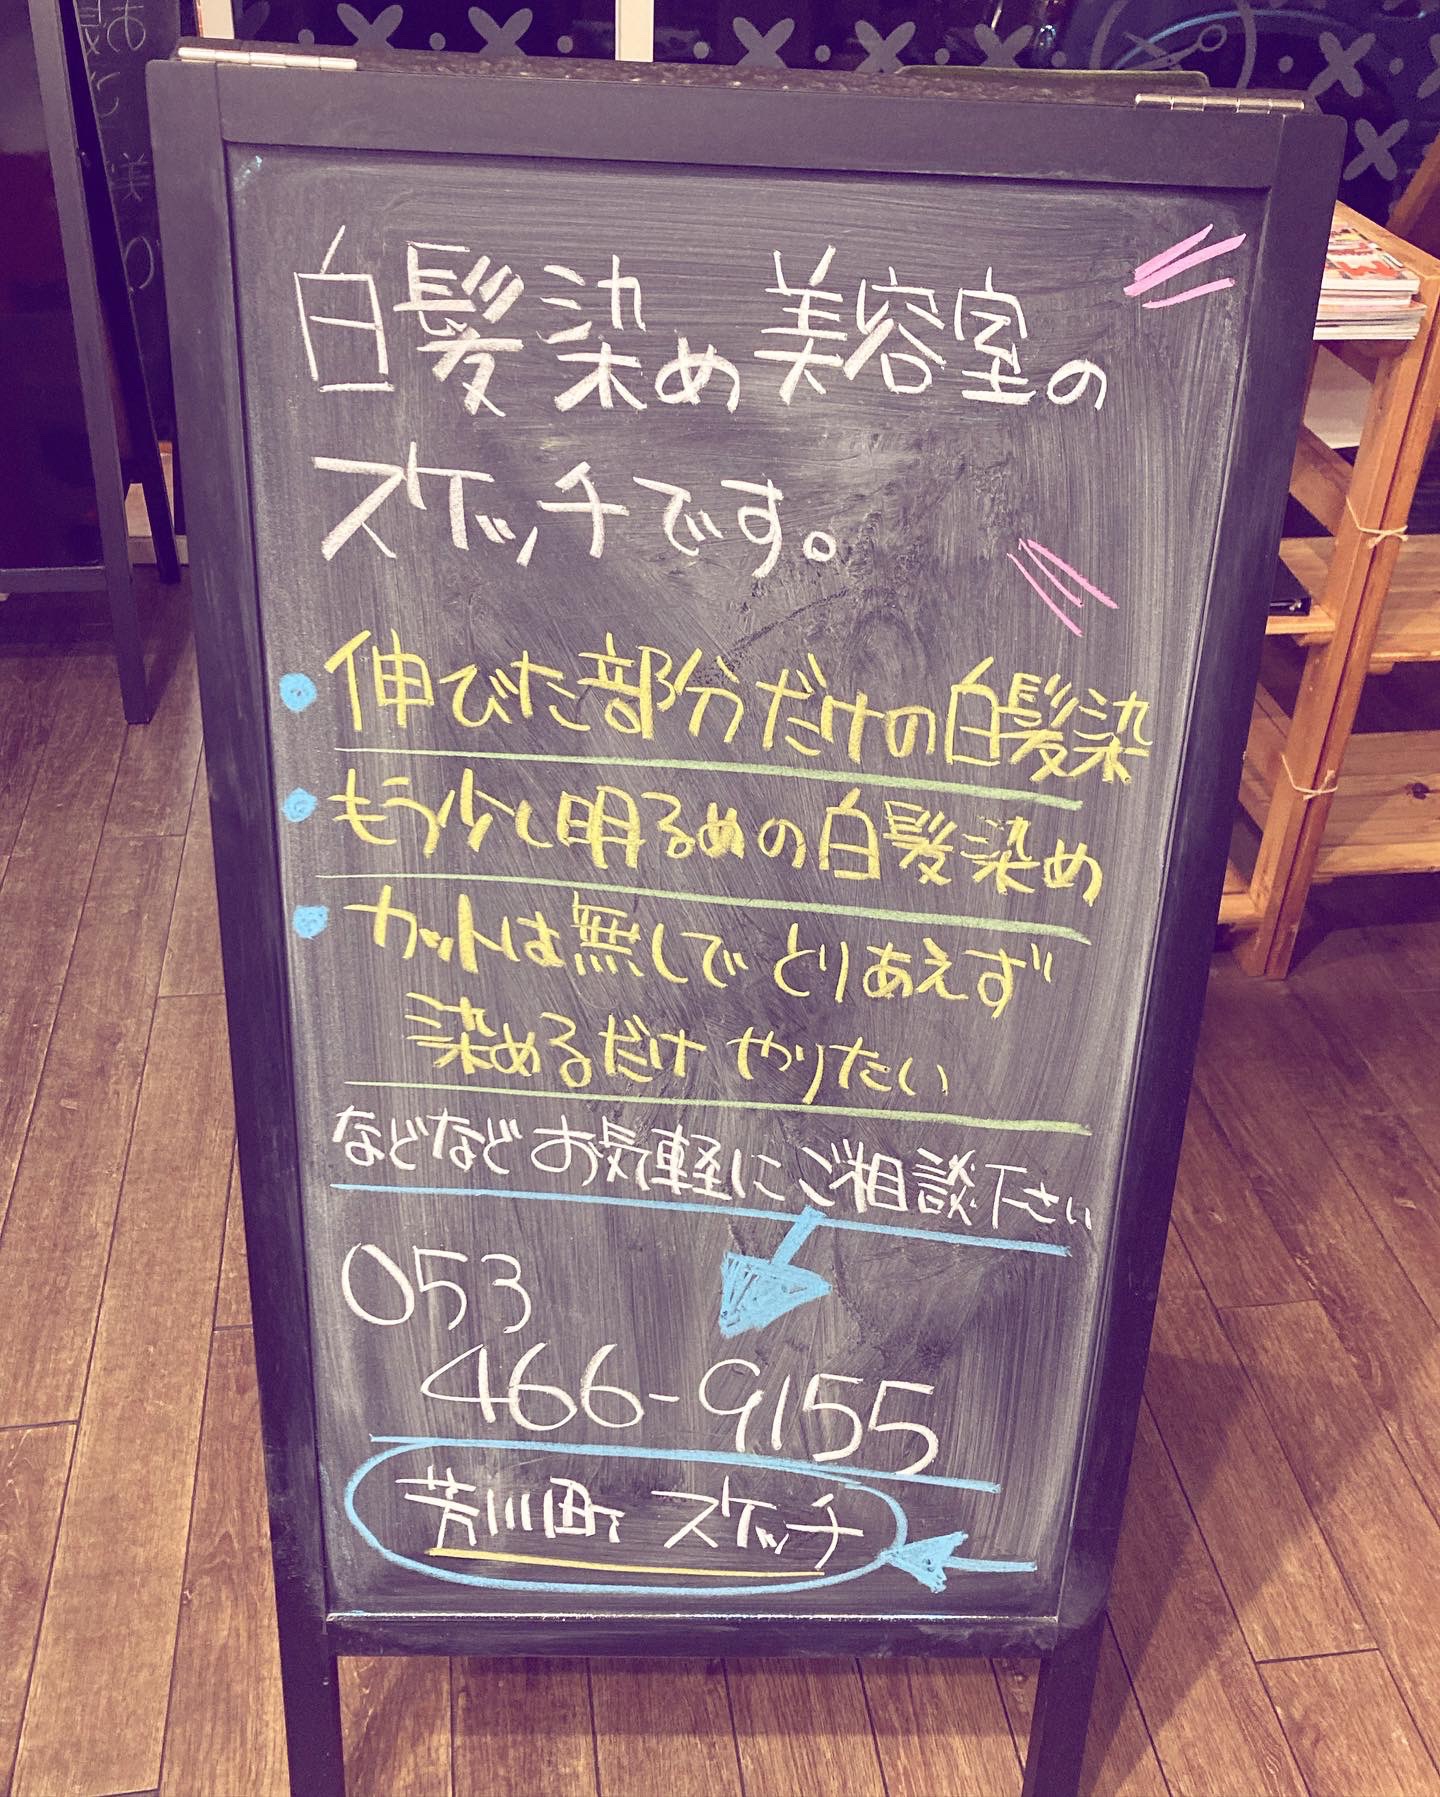 白髪染め 美容室の
スケッチです。
伸びた部分だけの白髪染
もう少し明るめの白髪染め
カットは無しで とりあえず
染めるだけ やりたい
などなど お気軽にご相談下さい
053
466-9155
芳川町 スケッチ